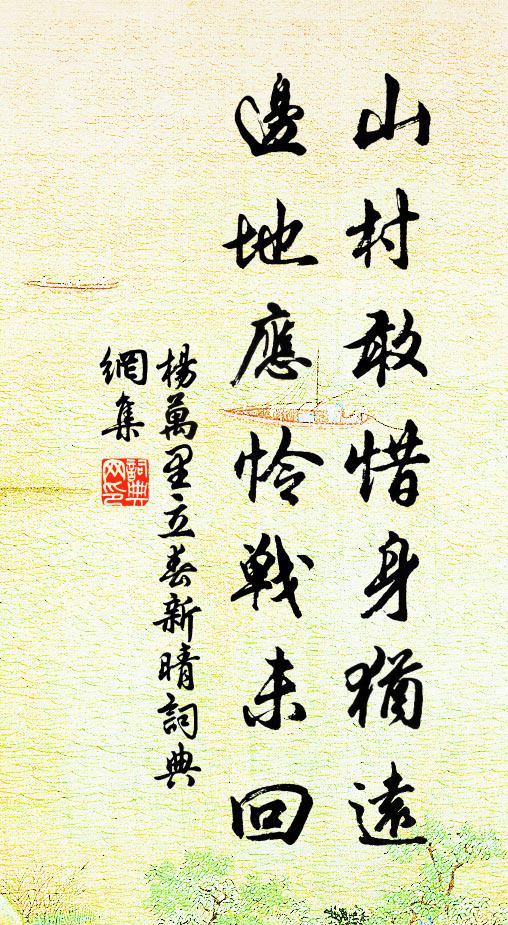 山村敢惜身猶遠
邊地應怜戰未回
楊萬里立春新晴詞典
網集
詞典
网印